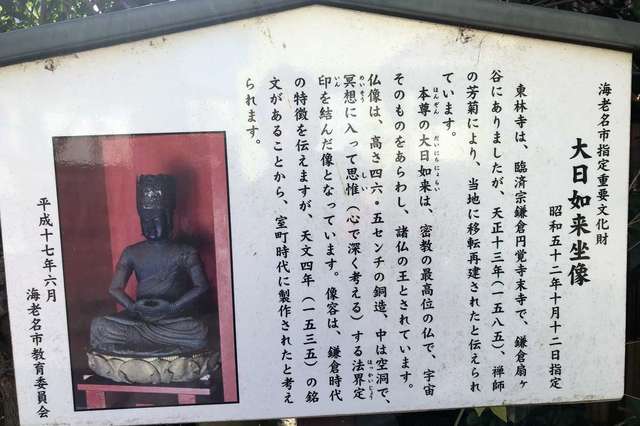 海老名市指定重要文化財
大日如来坐像
昭和五十二年十月十二日指定
東林寺は、臨済宗鎌倉円覚寺末寺で、鎌倉扇ヶ
谷にありましたが、天正十三年（一五八五）、禅師
の芳菊により、当地に移転再建されたと伝えられ
ています。
本尊の大日如来は、密教の最高位の仏で、宇宙
ほんぞん だいにちにょらい
そのものをあらわし、諸仏の王とされています。
仏像は、高さ四六・五センチの銅造、中は空洞で、
冥想に入って思惟（心で深く考える）する法界定
めいそう しい ほっかいじょう
印を結んだ像となっています。像容は、鎌倉時代
いん
の特徴を伝えますが、天文四年（一五三五）の銘
文があることから、室町時代に製作されたと考え
られます。
平成十七年六月
海老名市教育委員会